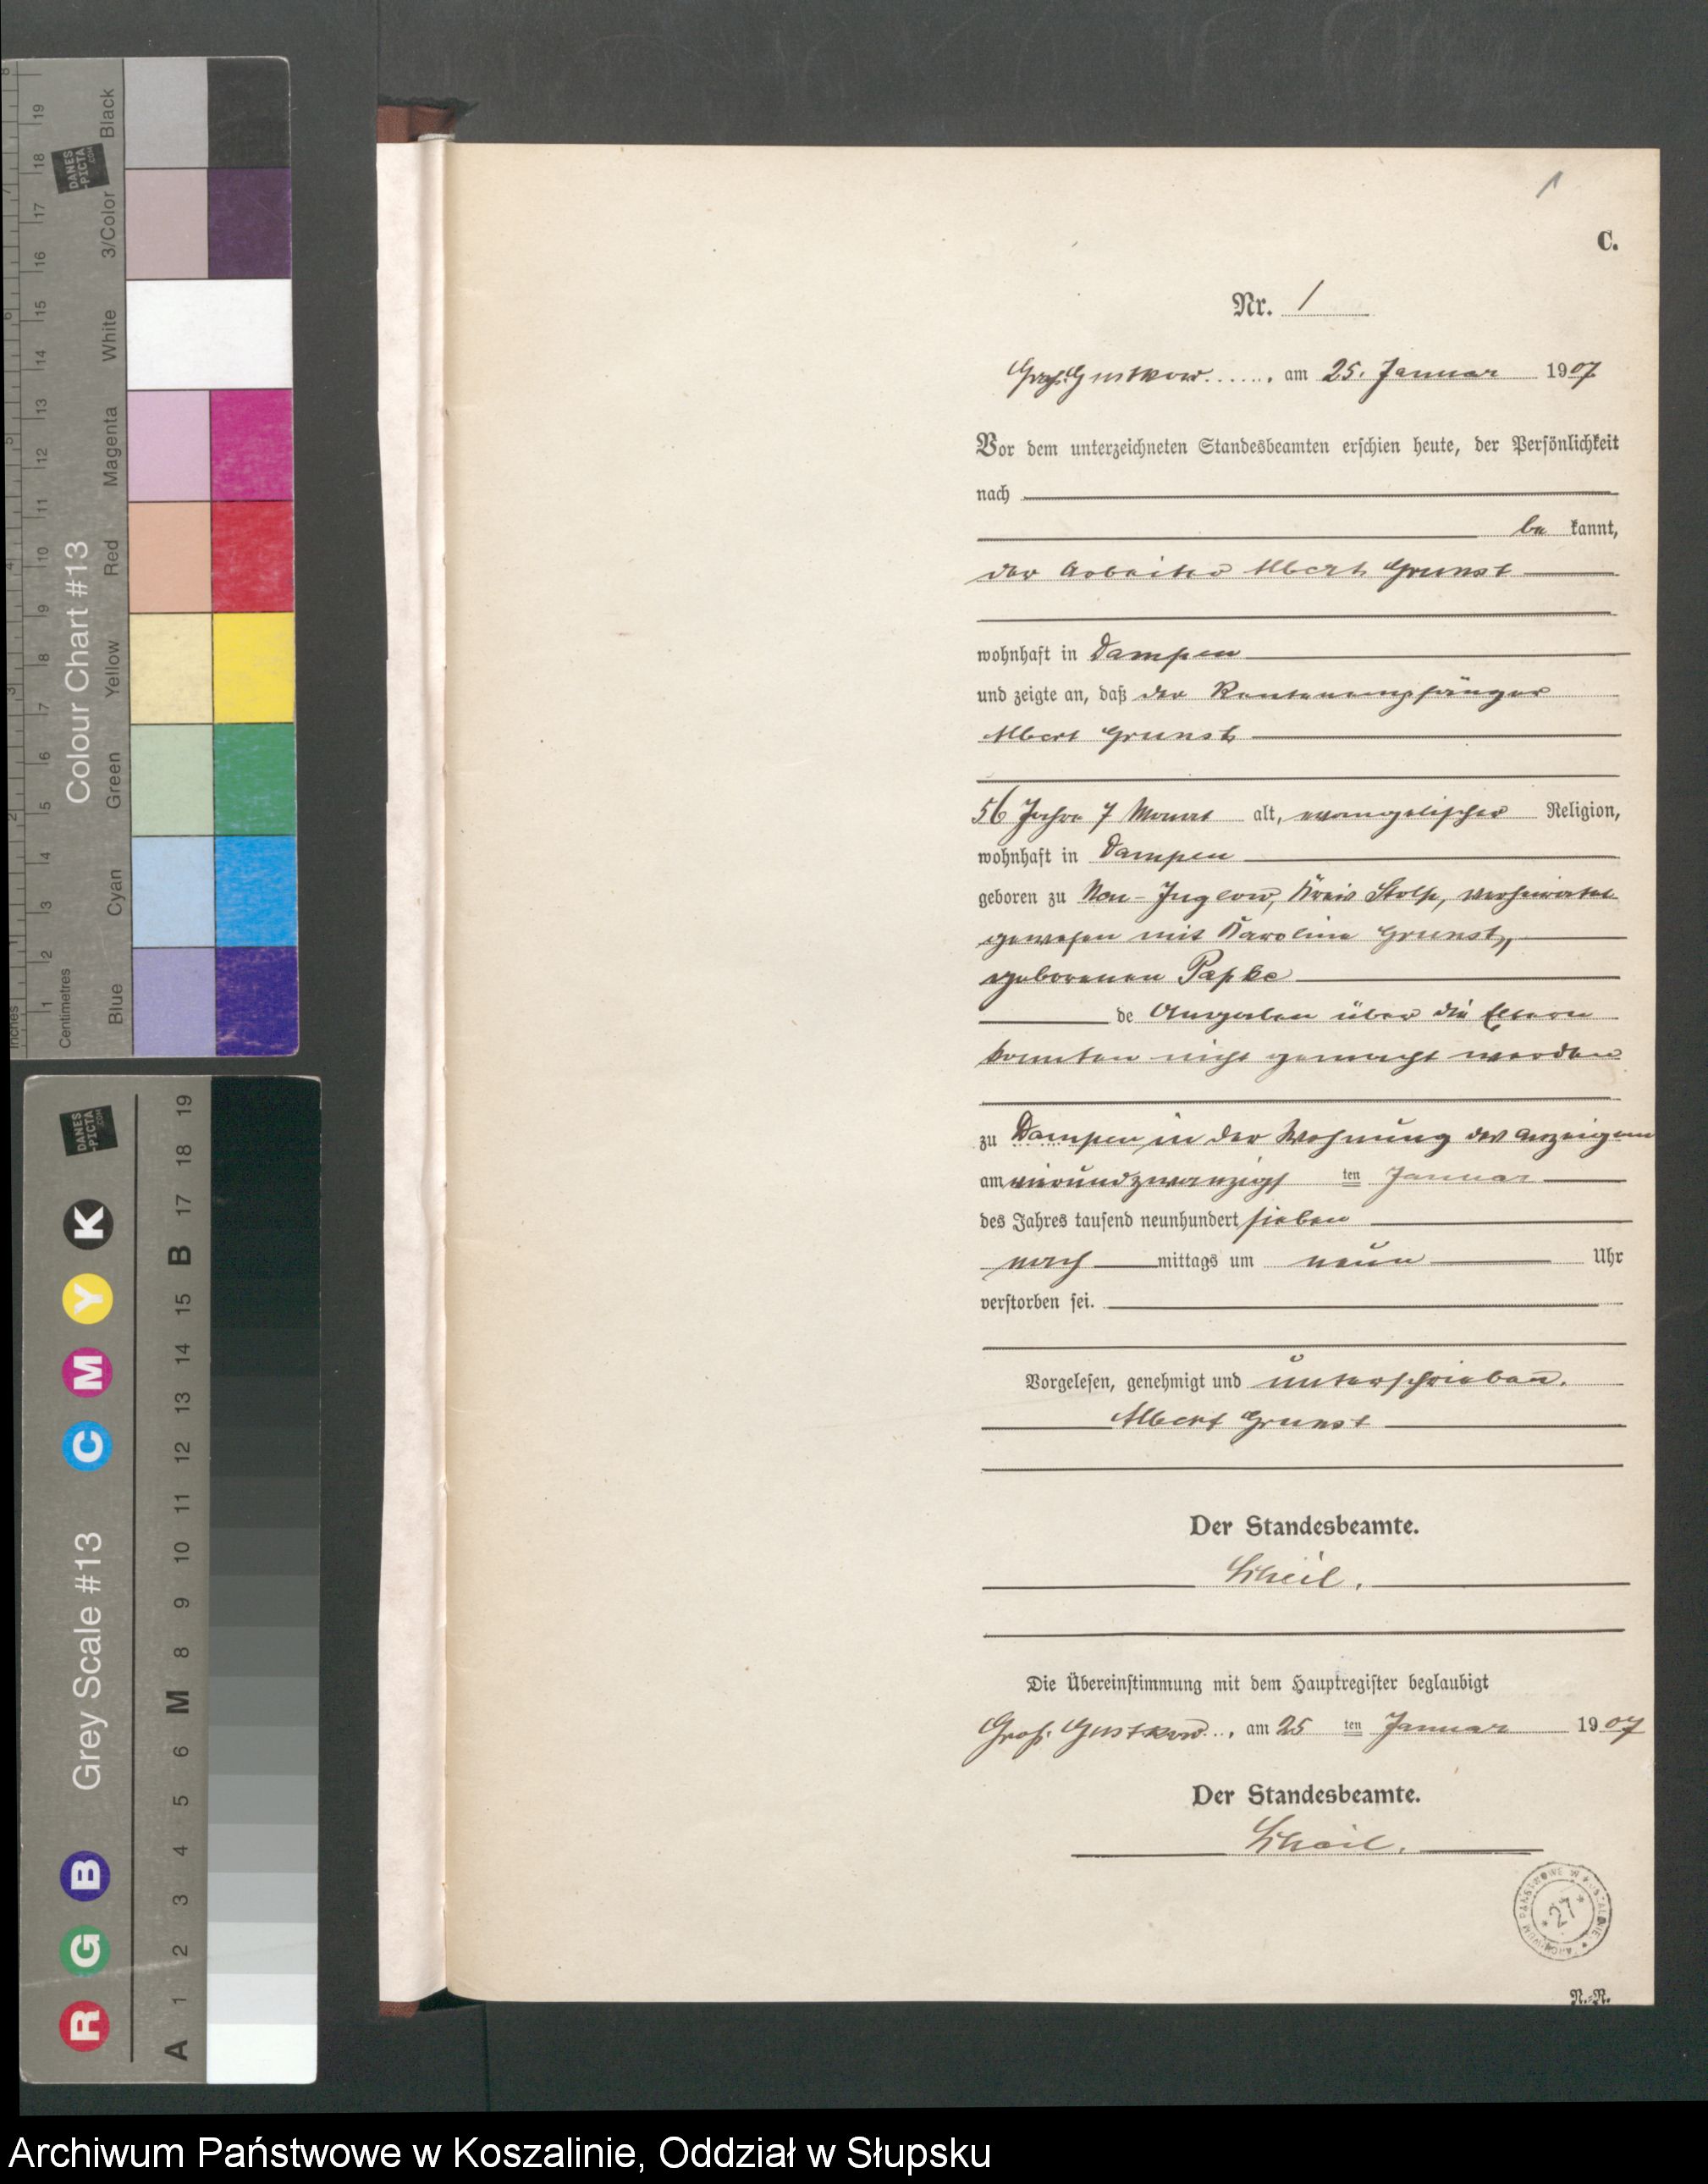 1
C.
Nr. 1
Groß Gustkow......, am 25. Januar 1907
Vor dem unterzeichneten Standesbeamten erschien heute, der Persönlichkeit
nach
be kannt,
der Arbeiter Albert Grunst
wohnhaft in Dampen
und zeigte an, daß der Rentenempfänger
Albert Grunst
56 Jahre 7 Monat alt, evangelischer Religion,
wohnhaft in Dampen
geboren zu Neu-Jugelow, Kreis Stolp, verheiratet
gewesen mit Karoline Grunst,
geborenen Papke
de Angaben über die Eltern
konnten nicht gemacht werden
zu Dampen in der Wohnung des Anzeigen
am vierundzwanzigs ten Januar
des Jahres tausend neunhundert sieben
nach mittags um neun Uhr
verstorben sei.
Vorgelesen, genehmigt und unterschrieben.
Albert Grunst
Der Standesbeamte.
Scheil.
Die Übereinstimmung mit dem Hauptregister beglaubigt
Groß Gustkow..., am 25 ten Januar 1907
Der Standesbeamte.
Scheil.
ARCHIWUM PAŃSTWOWE W KOSZALINIE
* 27 *
N.-N.
Colour Chart #13
Blue Cyan Green Yellow Red Magenta White 3/Color Black
inches
Centimetres
1 2 3 4 5 6 7 8 9 10 11 12 13 14 15 16 17 18 19
DANES
-PICTA
.COM
Grey Scale #13
R G B C M Y K
DANES
-PICTA
.COM
A 1 2 3 4 5 6 M 8 9 10 11 12 13 14 15 B 17 18 19
Archiwum Państwowe w Koszalinie, Oddział w Słupsku